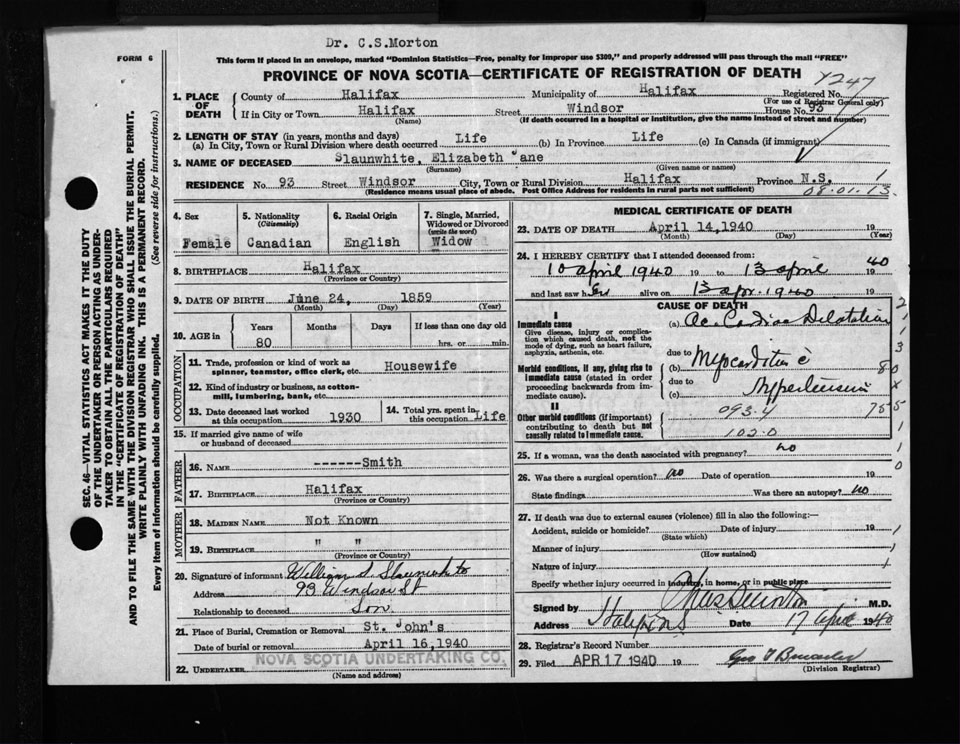 Dr. C.S.Morton
FORM 6
This form if placed in an envelope, marked "Dominion Statistics—Free, penalty for improper use $300," and properly addressed will pass through the mail "FREE"
PROVINCE OF NOVA SCOTIA—CERTIFICATE OF REGISTRATION OF DEATH
Y247
1. PLACE OF DEATH
County of Halifax Municipality of Halifax Registered No.
(For use of Registrar General only)
If in City or Town Halifax Street Windsor House No. 93
(Name) (If death occurred in a hospital or institution, give the name instead of street and number)
2. LENGTH OF STAY (in years, months and days)
(a) In City, Town or Rural Division where death occurred Life (b) In Province Life (c) In Canada (if immigrant)
3. NAME OF DECEASED Slaunwhite, Elizabeth Jane
(Surname) (Given name or names)
RESIDENCE No. 93 Street Windsor City, Town or Rural Division Halifax Province N.S. 1
(Residence means usual place of abode. Post Office Address for residents in rural parts not sufficient) 08.01.13
4. Sex
Female
5. Nationality
(Citizenship)
Canadian
6. Racial Origin
English
7. Single, Married, Widowed or Divorced
(write the word)
Widow
8. BIRTHPLACE Halifax
(Province or Country)
9. DATE OF BIRTH June 24, 1859
(Month) (Day) (Year)
10. AGE in
Years Months Days If less than one day old
80 hrs. or min.
OCCUPATION
11. Trade, profession or kind of work as spinner, teamster, office clerk, etc. Housewife
12. Kind of industry or business, as cotton-mill, lumbering, bank, etc.
13. Date deceased last worked at this occupation 1930
14. Total yrs. spent in this occupation Life
15. If married give name of wife or husband of deceased
FATHER
16. NAME ------Smith
17. BIRTHPLACE Halifax
(Province or Country)
MOTHER
18. MAIDEN NAME Not Known
19. BIRTHPLACE " "
(Province or Country)
20. Signature of informant William S. Slaunwhite
Address 93 Windsor St
Relationship to deceased Son
21. Place of Burial, Cremation or Removal St. John's
Date of burial or removal April 16,1940
22. UNDERTAKER NOVA SCOTIA UNDERTAKING CO.
(Name and address)
MEDICAL CERTIFICATE OF DEATH
23. DATE OF DEATH April 14,1940 19
(Month) (Day) (Year)
24. I HEREBY CERTIFY that I attended deceased from:
10 april 1940 19 to 13 april 19 40
and last saw her alive on 13 apr. 1940 19
CAUSE OF DEATH
I
Immediate cause
Give disease, injury or complication which caused death, not the mode of dying, such as heart failure, asphyxia, asthenia, etc.
(a) Ac. Cardiac Dilatation
due to
Morbid conditions, if any, giving rise to immediate cause (stated in order proceeding backwards from immediate cause).
(b) Myocarditis c
due to
(c) Hypertension
II
Other morbid conditions (if important) contributing to death but not causally related to immediate cause.
093.4
102.0
25. If a woman, was the death associated with pregnancy? no
26. Was there a surgical operation? no Date of operation 19
State findings Was there an autopsy? no
27. If death was due to external causes (violence) fill in also the following:—
Accident, suicide or homicide? Date of injury 19
(State which)
Manner of injury
(How sustained)
Nature of injury
Specify whether injury occurred in industry, in home, or in public place
Signed by Chas S Morton M.D.
Address Halifax NS Date 17 april 1940
28. Registrar's Record Number
29. Filed APR 17 1940 19
(Division Registrar)
SEC. 46—VITAL STATISTICS ACT MAKES IT THE DUTY
OF THE UNDERTAKER OR PERSON ACTING AS UNDER-
TAKER TO OBTAIN ALL THE PARTICULARS REQUIRED
IN THE "CERTIFICATE OF REGISTRATION OF DEATH"
AND TO FILE THE SAME WITH THE DIVISION REGISTRAR WHO SHALL ISSUE THE BURIAL PERMIT.
WRITE PLAINLY WITH UNFADING INK. THIS IS A PERMANENT RECORD.
Every item of information should be carefully supplied. (See reverse side for instructions.)